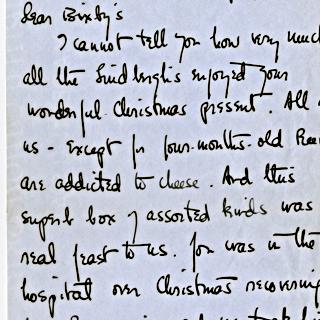 Dear Bixby's
I cannot tell you how very much
all the Lindbergh's enjoyed your
wonderful Christmas present. All
us - except for four-months-old Ree
are addicted to cheese. And this
superb box of assorted kinds was
real feast to us. Jon was in the
hospital over Christmas recovering